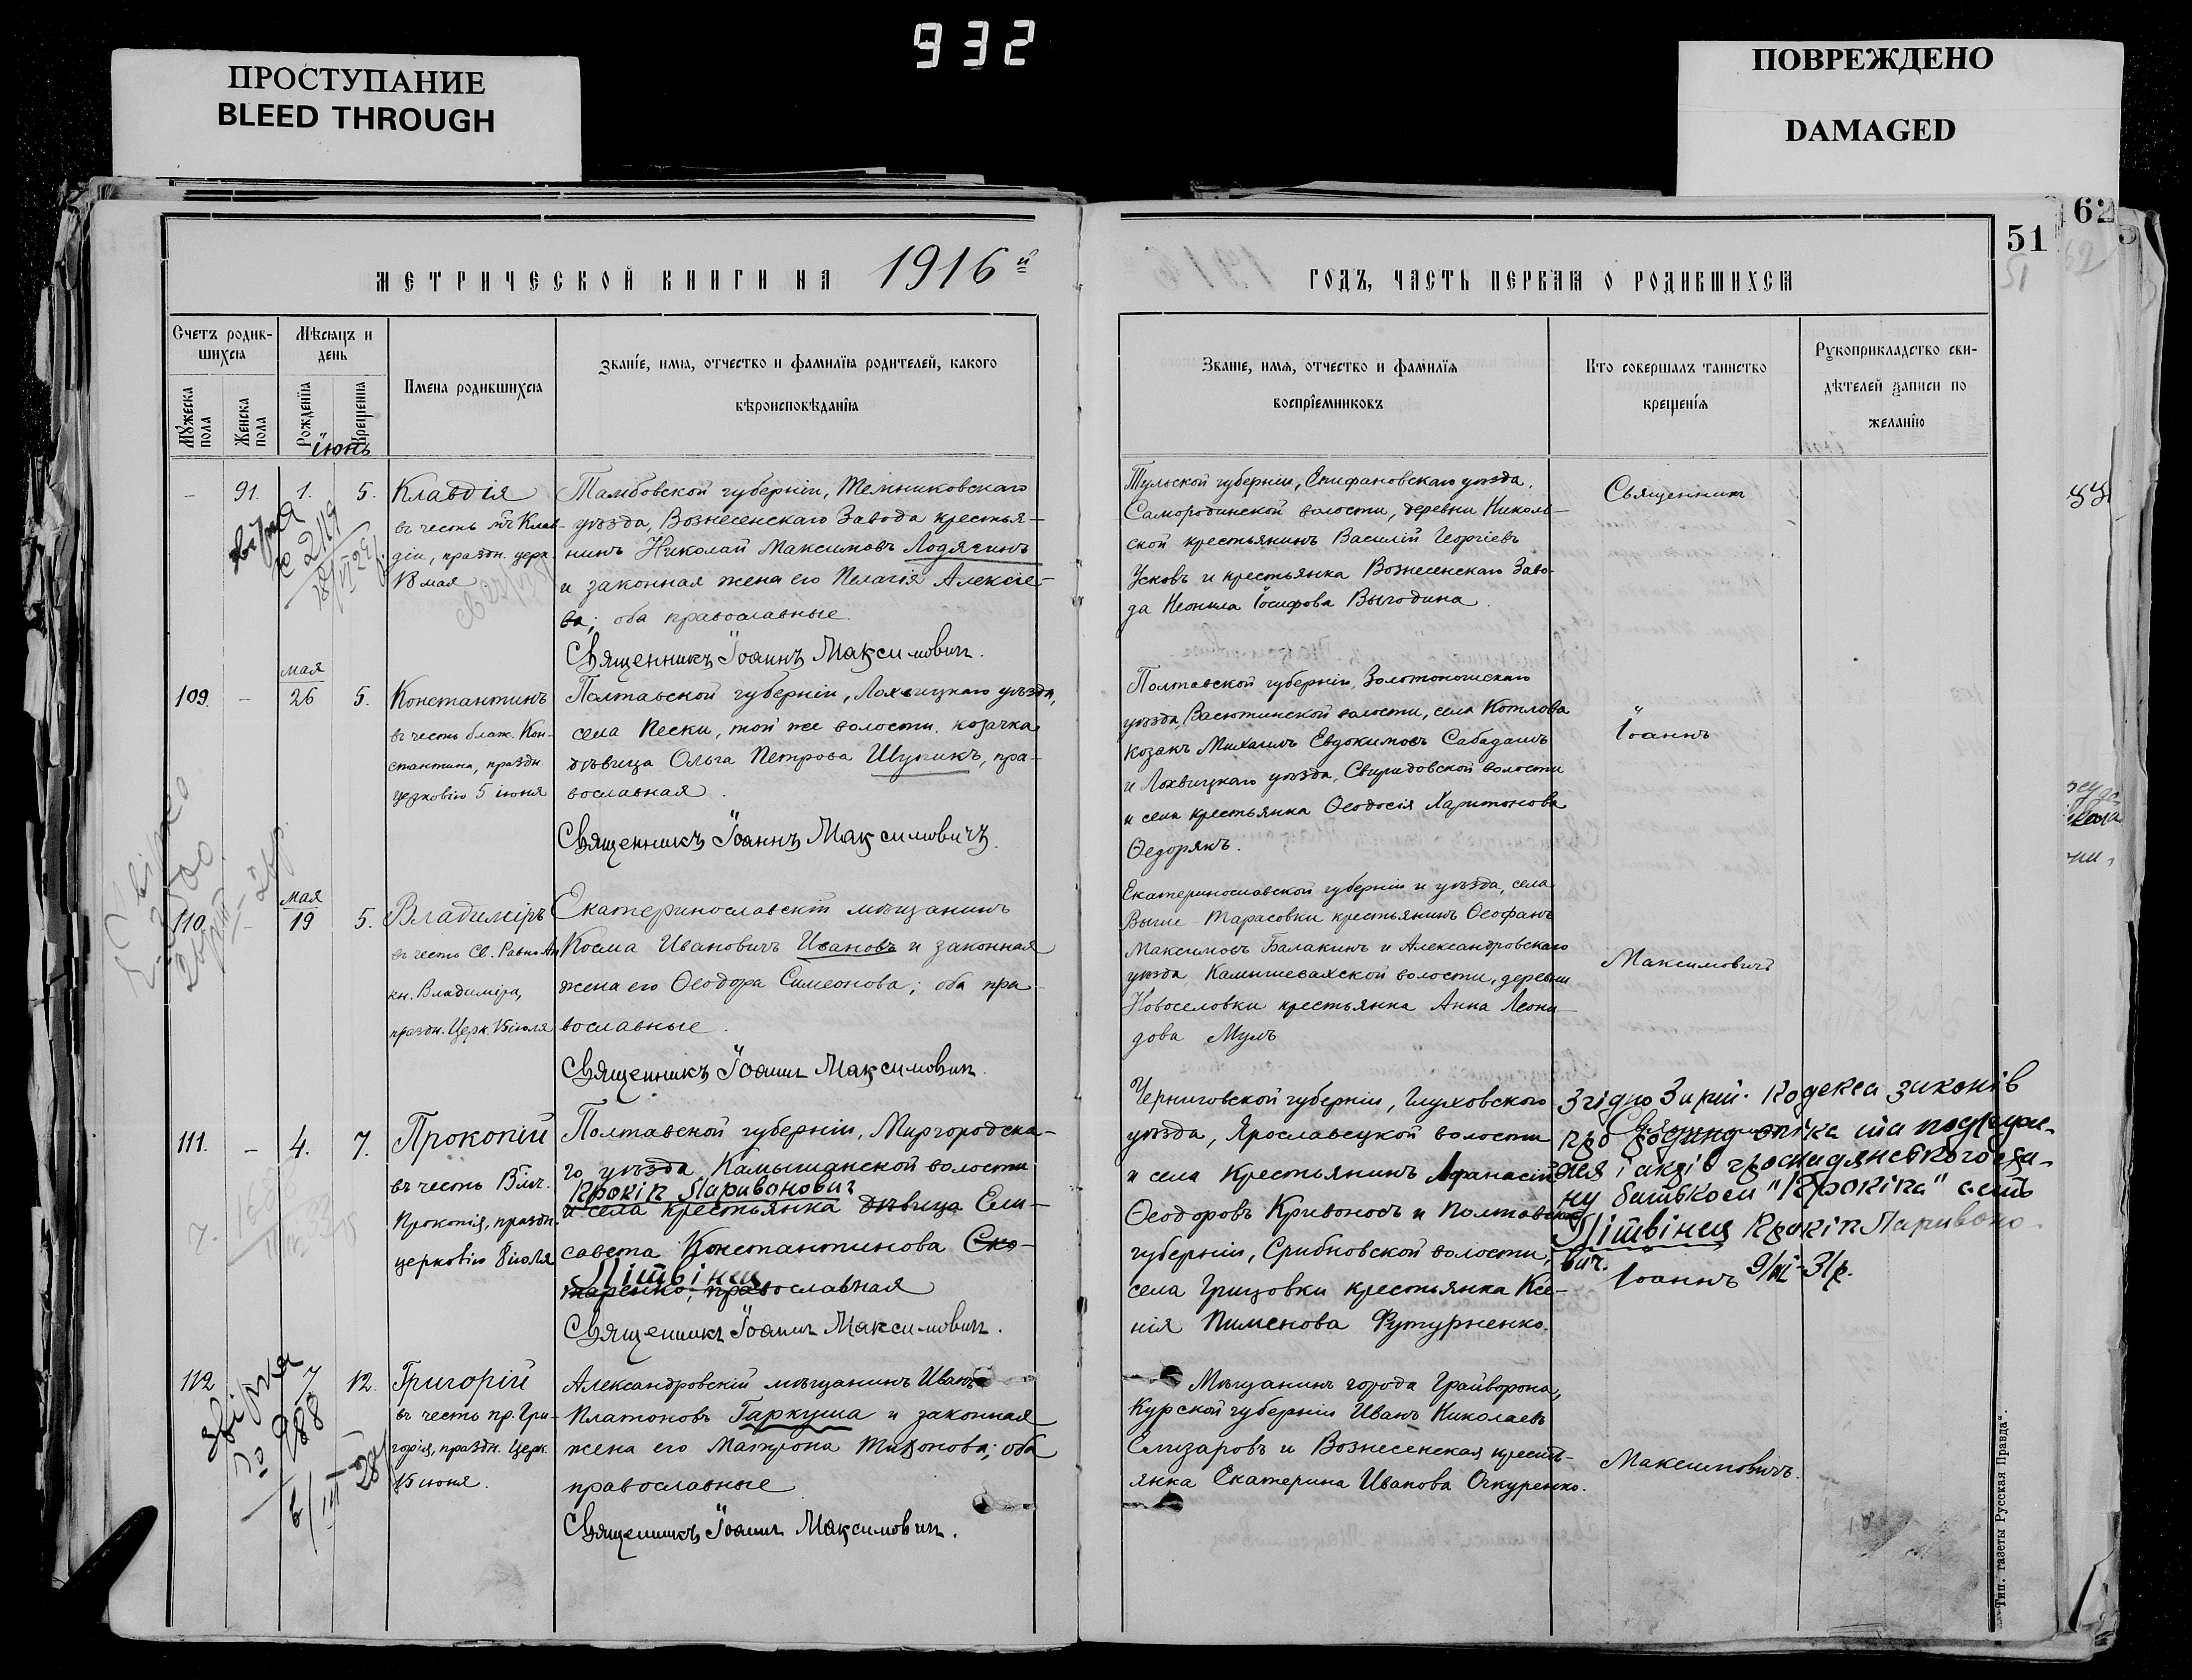 932
ПРОСТУПАНИЕ
BLEED THROUGH
ПОВРЕЖДЕНО
DAMAGED
62
51
МЕТРИЧЕСКОЙ КНИГИ НА 1916й
ГОДЪ, ЧАСТЬ ПЕРВАЯ О РОДИВШИХСЯ
Счетъ родив-
шихся
Мѣсяцъ и
день
Мужеска
пола
Женска
пола
Рожденїя
Крещенїя
Имена родившихся
Званїе, имя, отчество и фамилїя родителей, какого
вѣроисповѣданїя
Званїе, имя, отчество и фамилїя
воспрїемниковъ
Кто совершалъ таинство
крещенїя
Рукоприкладство сви-
дѣтелей записи по
желанїю
Їюнь
- 91. 1. 5.
Клавдія
въ честь мч. Клав-
діи, праздн. церк.
18 мая
Тамбовской губерніи, Темниковскаго
уѣзда, Вознесенскаго Завода крестья-
нинъ Николай Максимовъ Лодягинъ
и законная жена его Пелагія Алексіе-
ва; оба православные.
Священникъ Іоаннъ Максимович.
Тульской губерніи, Епифановскаго уѣзда,
Самородинской волости, деревни Николь-
ской крестьянинъ Василій Георгіевъ
Усковъ и крестьянка Вознесенскаго Заво-
да Неонила Іосифова Выгодина.
Священникъ
мая
109. - 26 5.
Константинъ
въ честь блаж. Кон-
стантина, праздн.
церковію 5 іюня
Полтавской губерніи, Лохвицкаго уѣзда,
села Пески, той же волости, козачка
дѣвица Ольга Петрова Шупикъ, пра-
вославная.
Священникъ Іоаннъ Максимовичъ.
Полтавской губерніи, Золотоношскаго
уѣзда, Васютинской волости, села Котлова
козакъ Михаилъ Евдокимовъ Сабадашъ
и Лохвицкаго уѣзда, Свиридовской волости
и села крестьянка Ѳеодосія Харитонова
Ѳедорякъ.
Іоаннъ
мая
110. - 19 5.
Владиміръ
въ честь Св. РавноАп
кн. Владиміра,
праздн. Церк. 15 іюля
Екатеринославскій мѣщанинъ
Косма Ивановичъ Ивановъ и законная
жена его Ѳеодора Симеонова; оба пра-
вославные.
Священникъ Іоаннъ Максимович.
Екатеринославской губерніи и уѣзда, села
Выше Тарасовки крестьянинъ Ѳеофанъ
Максимовъ Балакинъ и Александровскаго
уѣзда, Камышевахской волости, деревни
Новоселовки крестьянка Анна Леони-
дова Мулъ
Максимовичъ
111. - 4. 7.
Прокопій
въ честь Влмч.
Прокопія, праздн.
церковію 8 іюля
Полтавской губерніи, Миргородска-
го уѣзда, Камышанской волости
Прокіп Ларивонович
и села крестьянка дѣвица Ели-
савета Константинова Ско-
Літвінця
таренко, православная
Священникъ Іоаннъ Максимович.
Черниговской губерніи, Глуховского
уѣзда, Ярославецкой волости
и села крестьянинъ Афанасій
Ѳеодоровъ Кривоносъ и Полтавской
губерніи, Срибновской волости,
села Грицовки крестьянка Ксе-
нія Пименова Футурненко.
Згідно Кодекса законів
про родину опіка та подруж-
жя і актів громадянського ста-
ну батьком "Прокіпа" є
Літвінця Прокіп Ларивоно-
вич.
Іоаннъ 9/III-31р.
112 7 12.
Григорій
въ честь пр. Гри-
горія, праздн. Церк.
15 іюня.
Александровскій мѣщанинъ Иванъ
Платоновъ Гаркуша и законная
жена его Матрона Тихонова; оба
православные
Священникъ Іоаннъ Максимович.
Мѣщанинъ города Грайворона,
Курской губерніи Иванъ Николаевъ
Елизаровъ и Вознесенская кресть-
янка Екатерина Иванова Очкуренко.
Максимовичъ.
Тип. газеты Русская Правда“.